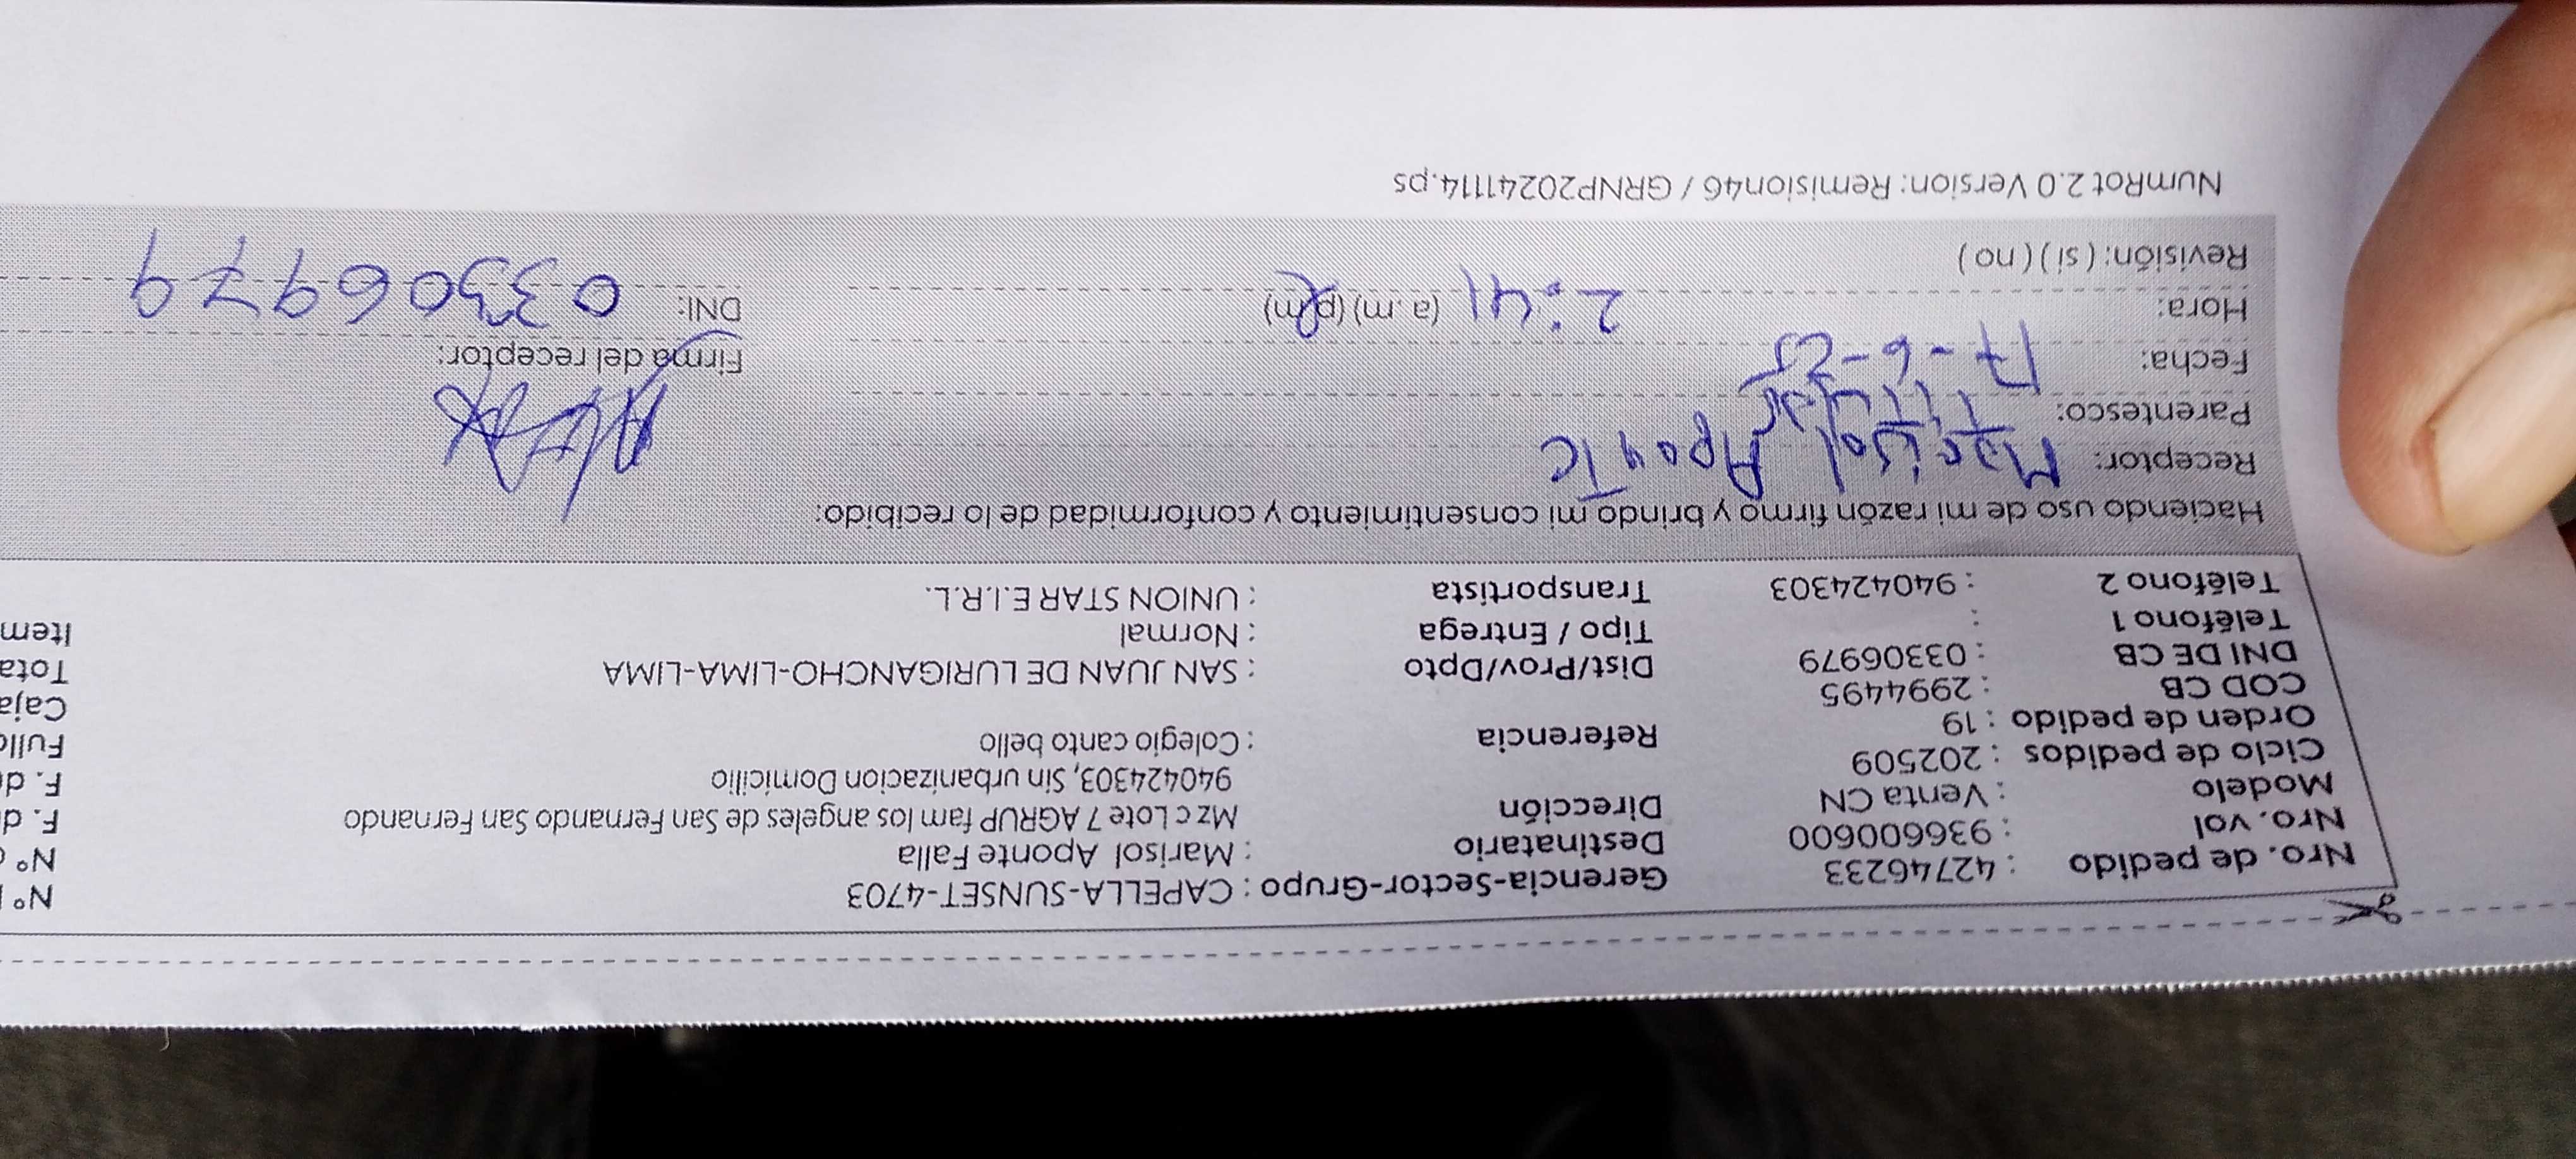 Nro. de pedido : 42746233
Nro. vol : 936600600
Modelo : Venta CN
Ciclo de pedidos : 202509
Orden de pedido : 19
COD CB : 2994495
DNI DE CB : 03306979
Teléfono 1 :
Teléfono 2 : 940424303
Gerencia-Sector-Grupo : CAPELLA-SUNSET-4703
Destinatario : Marisol Aponte Falla
Dirección Mz c Lote 7 AGRUP fam los angeles de San Fernando San Fernando
940424303, Sin urbanizacion Domicilio
Referencia : Colegio canto bello
Dist/Prov/Dpto : SAN JUAN DE LURIGANCHO-LIMA-LIMA
Tipo / Entrega : Normal
Transportista : UNION STAR E.I.R.L.
N°
N°
F. d
F. d
Fullo
Caja
Tota
Item
Haciendo uso de mi razón firmo y brindo mi consentimiento y conformidad de lo recibido:
Receptor: Marisol Aponte
Parentesco: Titular
Fecha: 17-6-25
Hora: 2:41 (a.m) (p.m)
Revisión: ( si ) ( no )
Firma del receptor:
DNI: 03306979
NumRot 2.0 Version: Remision46 / GRNP20241114.ps